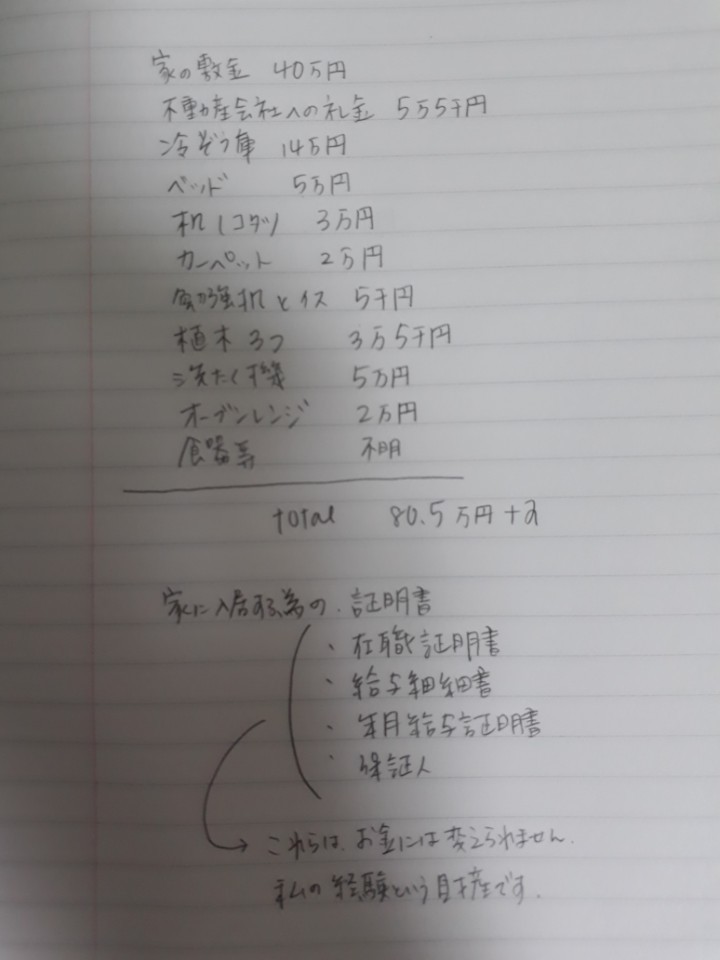 家の敷金 40万円
不動産会社への礼金 5万5千円
冷ぞう庫 14万円
ベッド 5万円
机(コタツ) 3万円
カーペット 2万円
勉強机とイス 5千円
植木3つ 3万5千円
洗たく機 5万円
オーブンレンジ 2万円
食器等 不明
total 80.5万円+α
家に入居する為の、証明書
・在職証明書
・給与明細書
・年月給与証明書
・保証人
これらは、お金には変えられません。
私の経験という財産です。